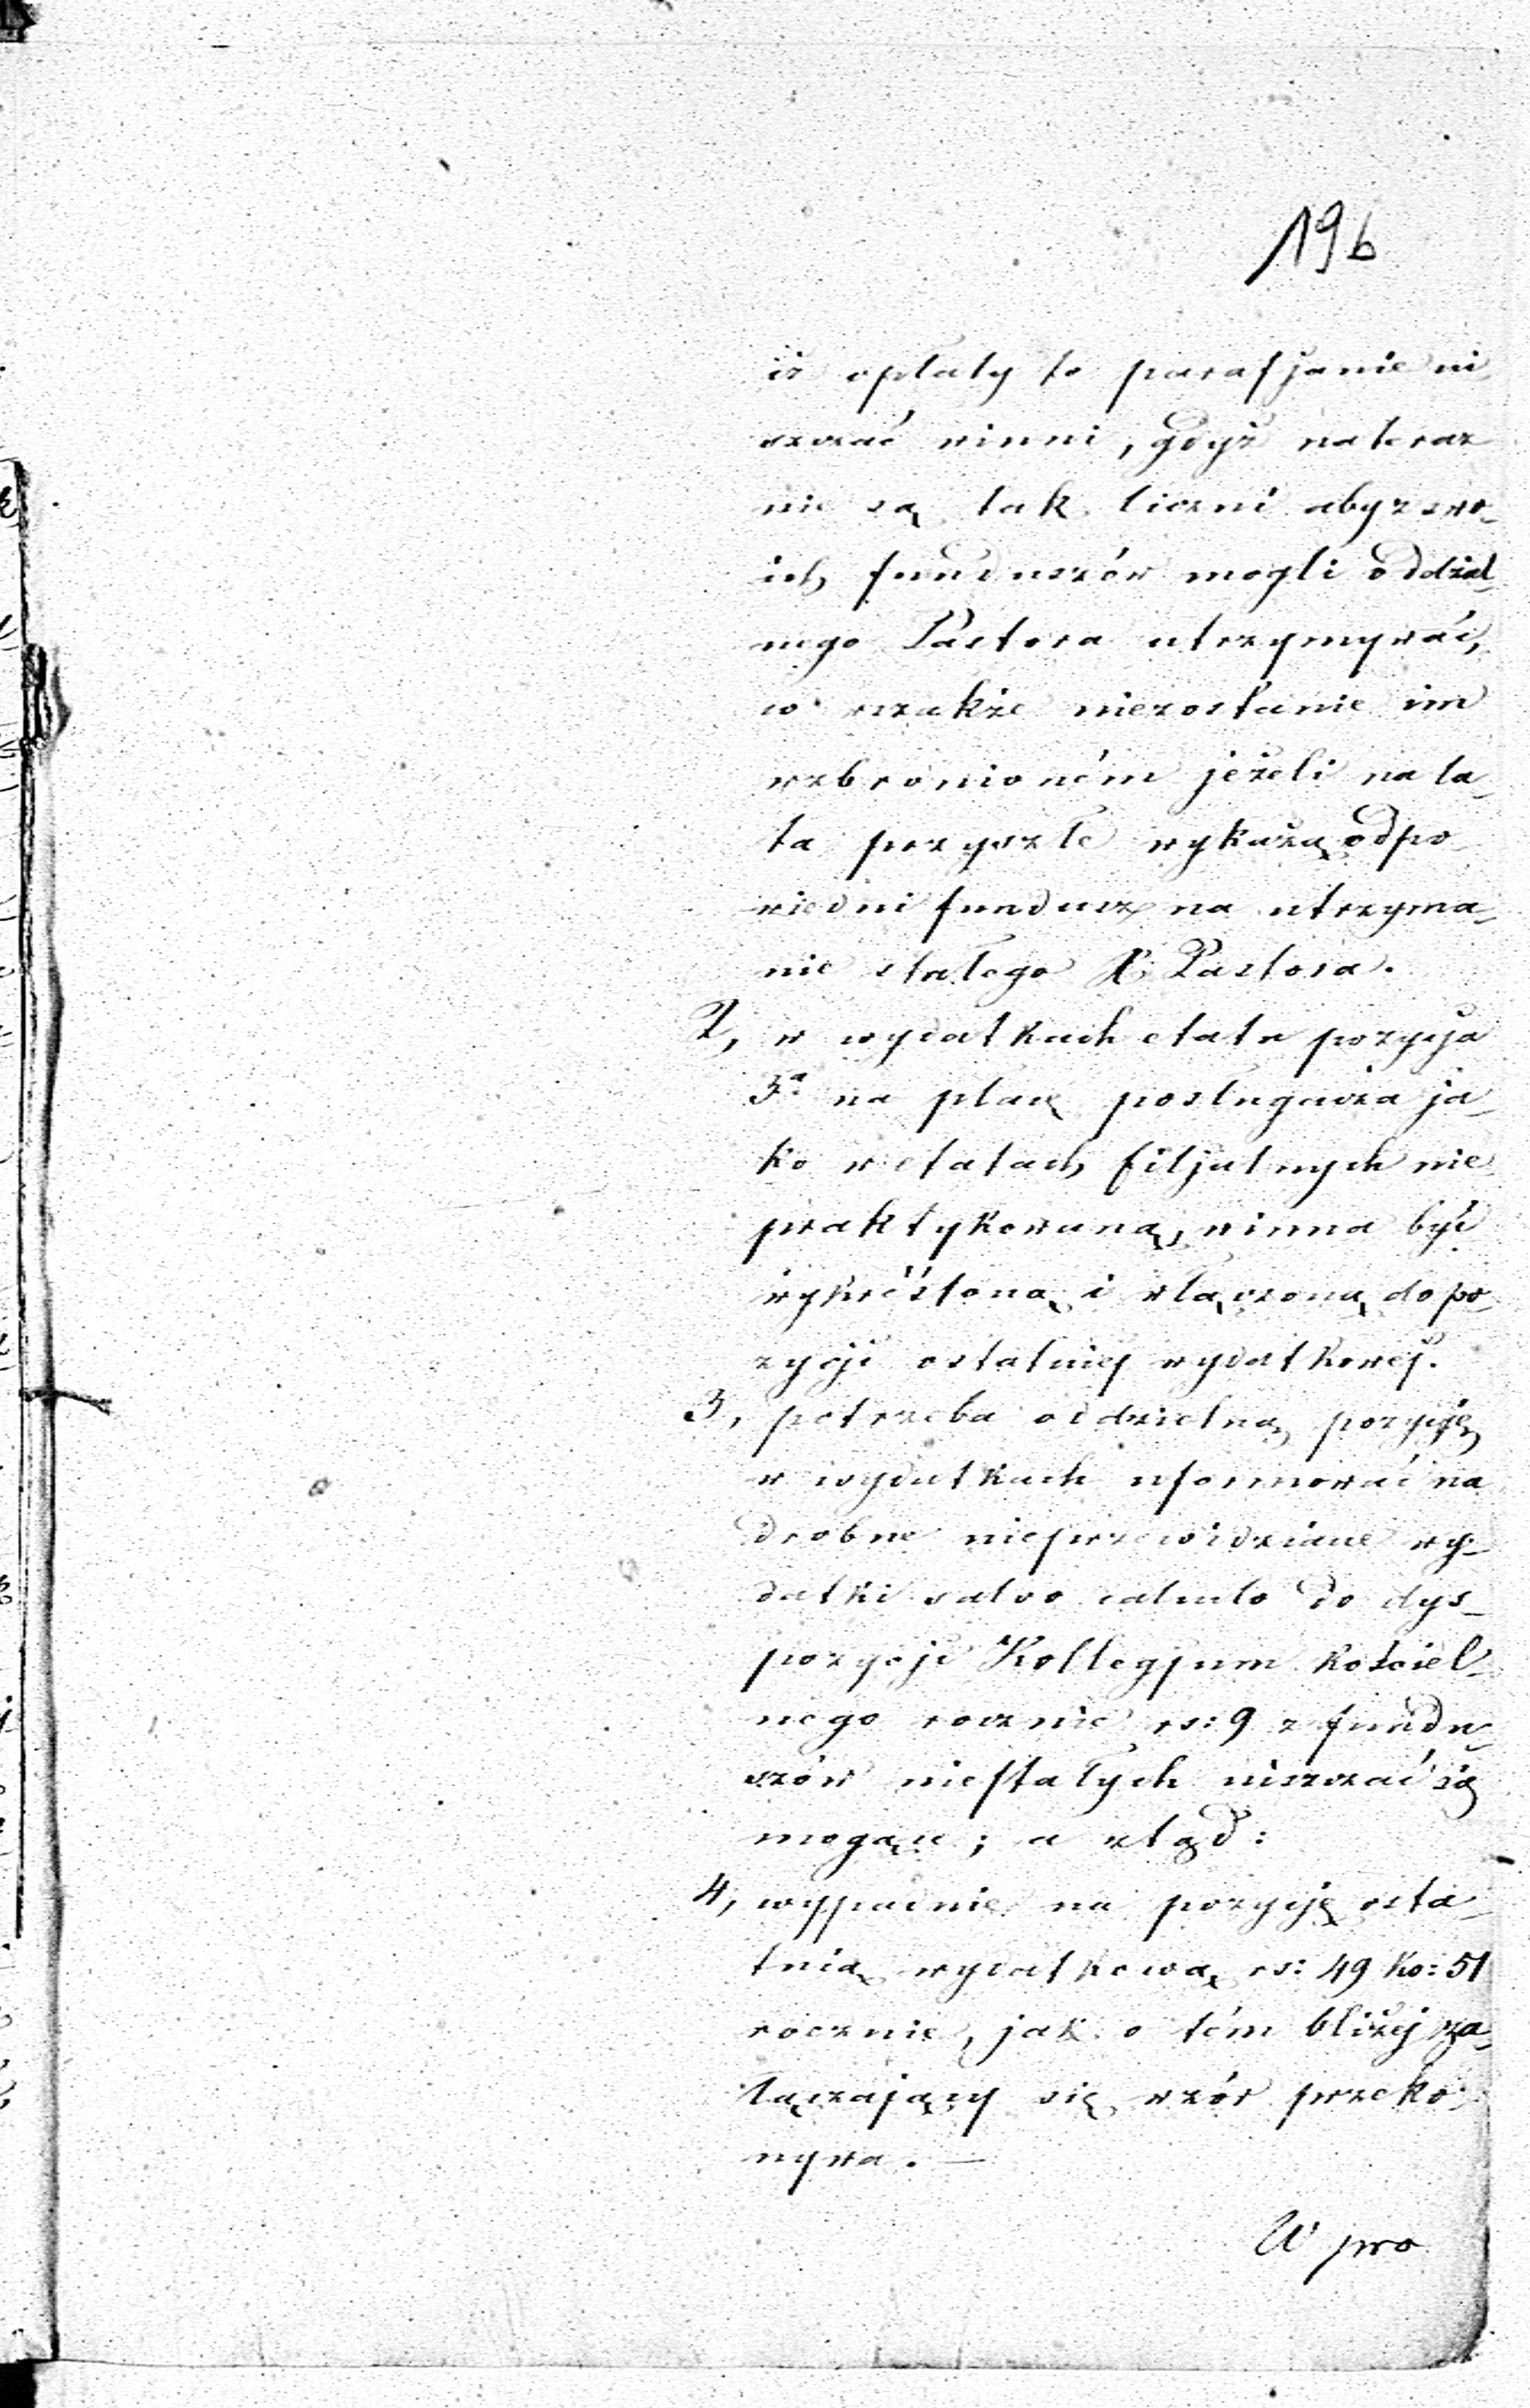 196
iż opłaty te parafjanie ui
szczać winni, gdyż na teraz
nie są tak liczni aby z swo-
ich funduszów mogli oddziel-
nego Pastora utrzymywać,
w wszakże niezostanie im
wzbronioném jeżeli na la-
ta przyszłe wykażą odpo-
wiedni fundusz na utrzyma-
nie stałego X. Pastora.
2, w wydatkach etatu pozycja
3a na płacę posługacza ja-
ko w etatach filjalnych nie
praktykowaną, winna być
wykréśloną i włączoną do po-
zycji ostatniej wydatkowej.
3, potrzeba oddzielną pozycję
w wydatkach uformować na
drobne nieprzewidziane wy-
datki salvo calculo do dys-
pozycji Kollegjum Kościel-
nego rocznie rs: 9 z fundu-
szów niestałych uiszczać się
mogące; a ztąd:
4, wypadnie na pozycję osta-
tnią wydatkową rs: 49 ko: 51
rocznie, jak o tém bliżej za-
łączający się wzór przeko-
nywa. —
W pro